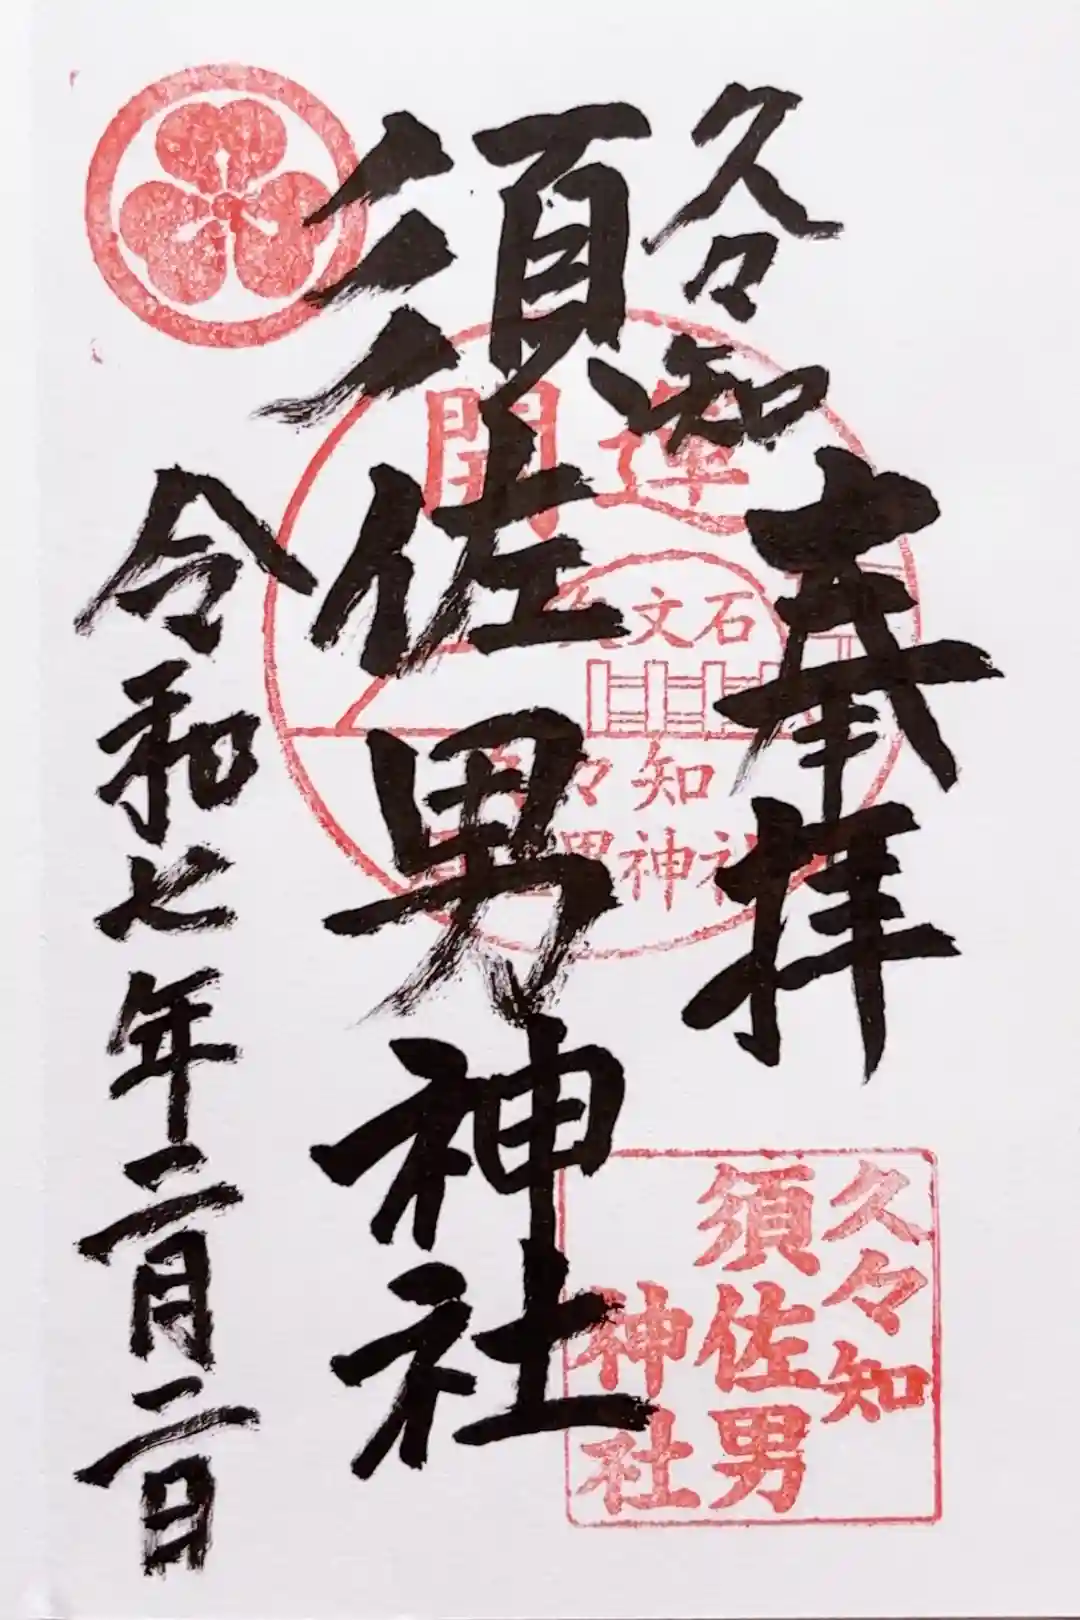 久々知
奉拝
須佐男神社
令和七年二月二日
開運
文石
々知
男神社
久々知
須佐男
神社